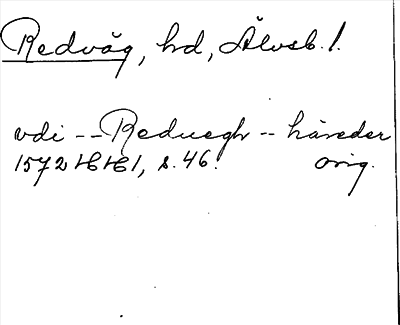 Redväg, hd, Älvsb. l.
vdi -- Reduegh -- häreder
1572 HH 1, s. 46. orig.